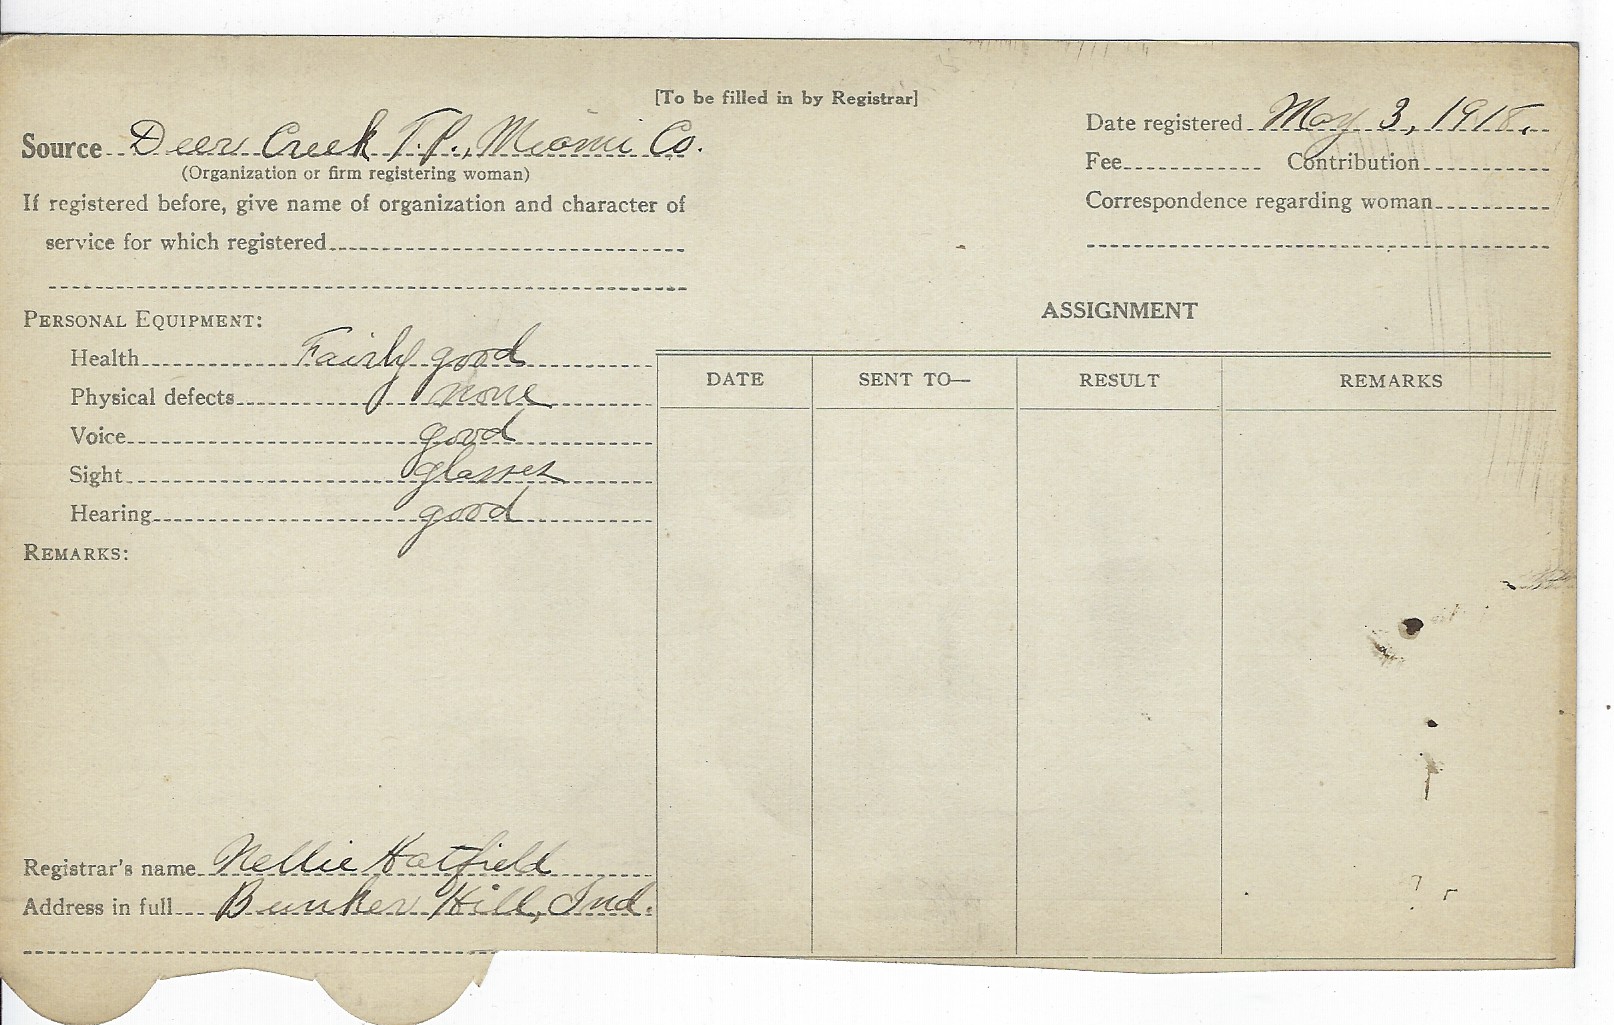 [To be filled in by Registrar]
Source Deer Creek T.P., Miami Co.
(Organization or firm registering woman)
If registered before, give name of organization and character of
service for which registered
Date registered May 3, 1918.
Fee Contribution
Correspondence regarding woman
PERSONAL EQUIPMENT:
Health Fairly good
Physical defects none
Voice good
Sight glasses
Hearing good
REMARKS:
ASSIGNMENT
DATE SENT TO— RESULT REMARKS
Registrar's name Nellie Hatfield
Address in full Bunker Hill, Ind.